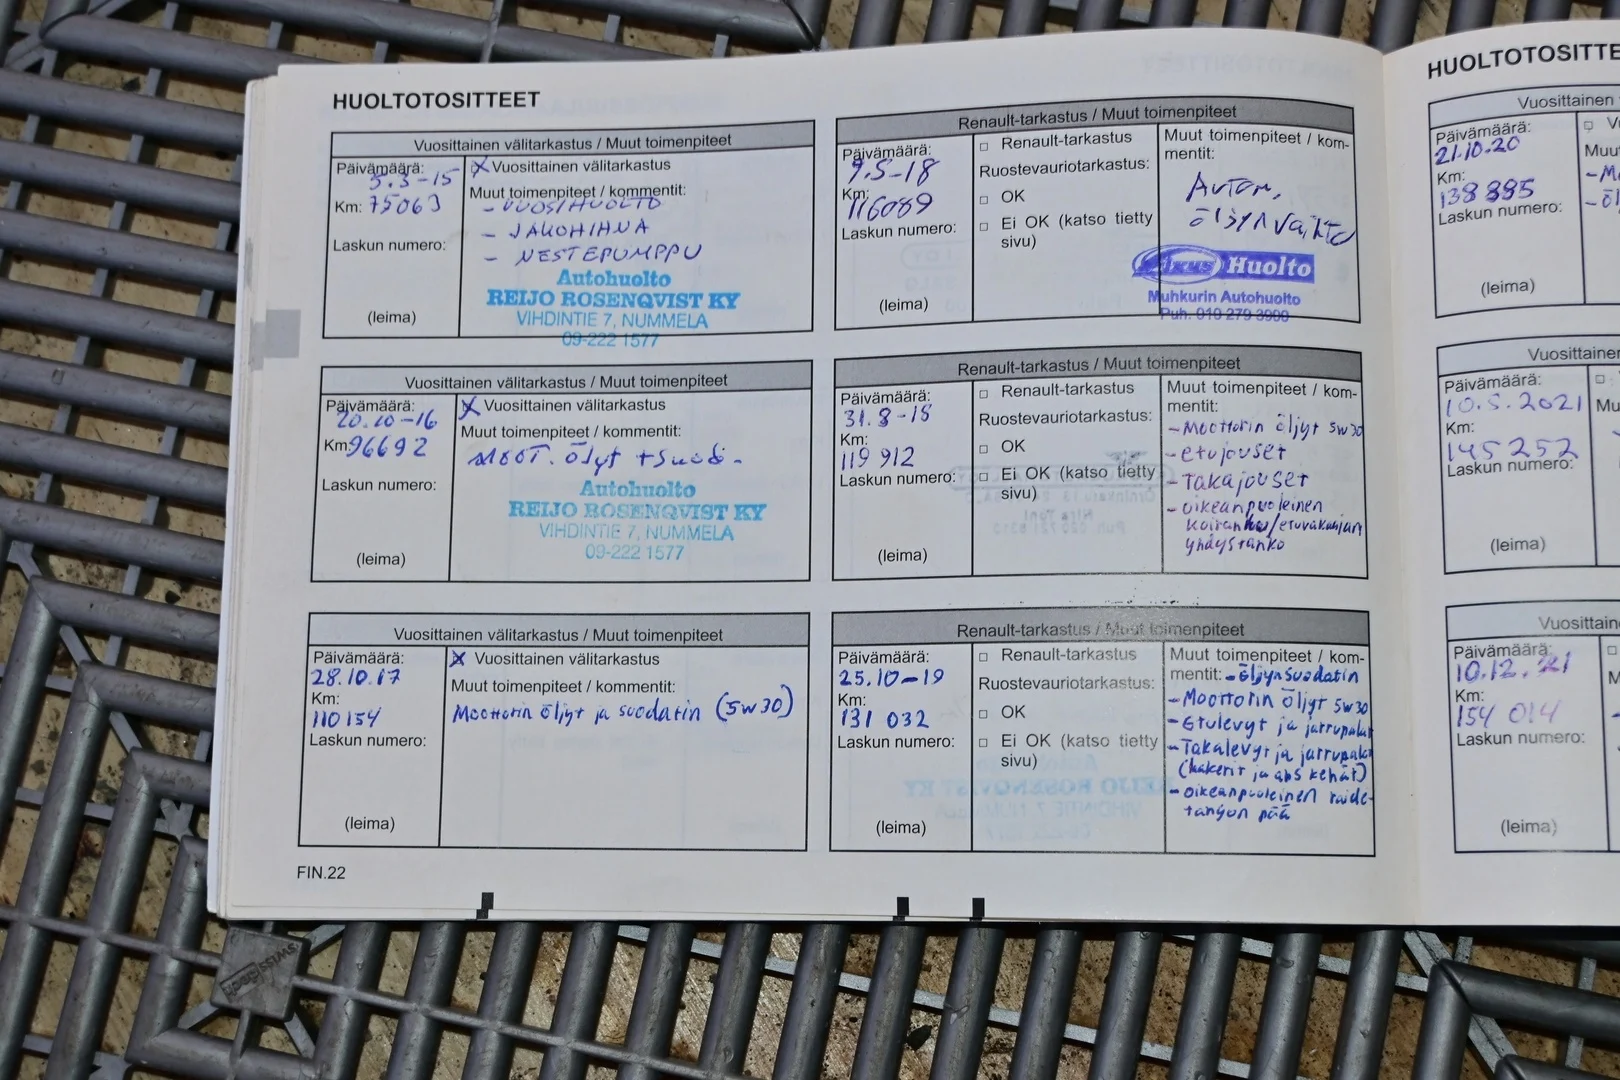 HUOLTOTOSITTEET
Vuosittainen välitarkastus / Muut toimenpiteet
Päivämäärä:
5.3-15
Km: 75063
Laskun numero:
(leima)
X Vuosittainen välitarkastus
Muut toimenpiteet / kommentit:
- VUOSIHUOLTO
- JAKOHIHNA
- NESTEPUMPPU
Autohuolto
REIJO ROSENQVIST KY
VIHDINTIE 7, NUMMELA
09-222 1577
Vuosittainen välitarkastus / Muut toimenpiteet
Päivämäärä:
20.10-16
Km: 96692
Laskun numero:
(leima)
X Vuosittainen välitarkastus
Muut toimenpiteet / kommentit:
MOOT. öljyt + suod.
Autohuolto
REIJO ROSENQVIST KY
VIHDINTIE 7, NUMMELA
09-222 1577
Vuosittainen välitarkastus / Muut toimenpiteet
Päivämäärä:
28.10.17
Km:
110154
Laskun numero:
(leima)
X Vuosittainen välitarkastus
Muut toimenpiteet / kommentit:
Moottorin öljyt ja suodatin (5w30)
FIN.22
Renault-tarkastus / Muut toimenpiteet
Päivämäärä:
9.5-18
Km:
116089
Laskun numero:
(leima)
Renault-tarkastus
Ruostevauriotarkastus:
OK
Ei OK (katso tietty
sivu)
Muut toimenpiteet / kom-
mentit:
Autom.
öljynvaihto
Huolto
Muhkurin Autohuolto
Puh. 010 279 3900
Renault-tarkastus / Muut toimenpiteet
Päivämäärä:
31.8-18
Km:
119 912
Laskun numero:
(leima)
Renault-tarkastus
Ruostevauriotarkastus:
OK
Ei OK (katso tietty
sivu)
Muut toimenpiteet / kom-
mentit:
- Moottorin öljyt 5w30
- etujouset
- Takajouset
- oikeanpuoleinen
yhdystanko
Renault-tarkastus / Muut toimenpiteet
Päivämäärä:
25.10-19
Km:
131 032
Laskun numero:
(leima)
Renault-tarkastus
Ruostevauriotarkastus:
OK
Ei OK (katso tietty
sivu)
Muut toimenpiteet / kom-
mentit: - öljynsuodatin
- Moottorin öljyt 5w30
- Etulevyt ja jarrupalat
- Takalevyt ja jarrupalat
(laakerit ja abs kehät)
- oikeanpuoleinen raide-
tangon pää
HUOLTOTOSITTE
Vuosittainen
Päivämäärä:
21.10.20
Km:
138 885
Laskun numero:
(leima)
Muut
Vuosittainen
Päivämäärä:
10.5.2021
Km:
145 252
Laskun numero:
(leima)
Mu
Vuosittaine
Päivämäärä:
10.12.21
Km:
154 014
Laskun numero:
(leima)
M